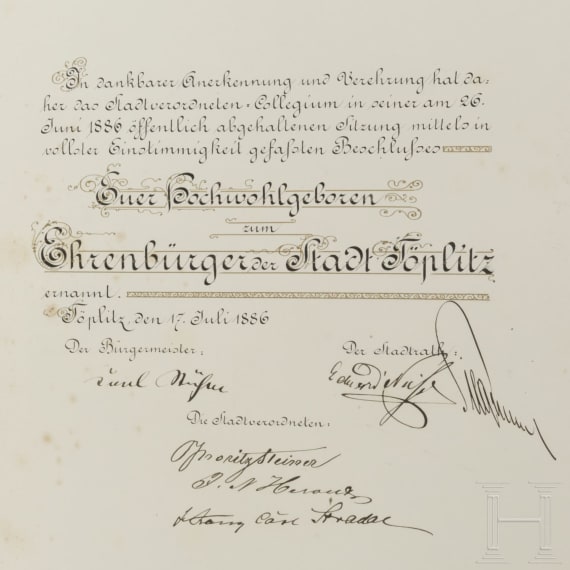 In dankbarer Anerkennung und Verehrung hat da=
her das Stadtverordneten-Collegium in seiner am 26.
Juni 1886 öffentlich abgehaltenen Sitzung mittels in
vollster Einstimmigkeit gefaßten Beschlußes
Euer Hochwohlgeboren
zum
Ehrenbürger der Stadt Töplitz
ernannt.
Töplitz, den 17. Juli 1886
Der Bürgermeister: Der Stadtrath:
Karl Eduard
Die Stadtverordneten:
Moritz Steiner
J. N.
Franz Carl Stradal
H